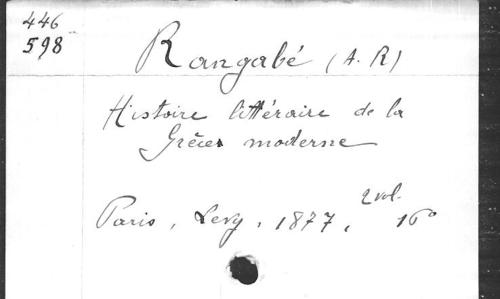 446
598
Rangabé (A. R)
Histoire littéraire de la
Grèce moderne
Paris, Levy, 1877, 2 vol. 16°